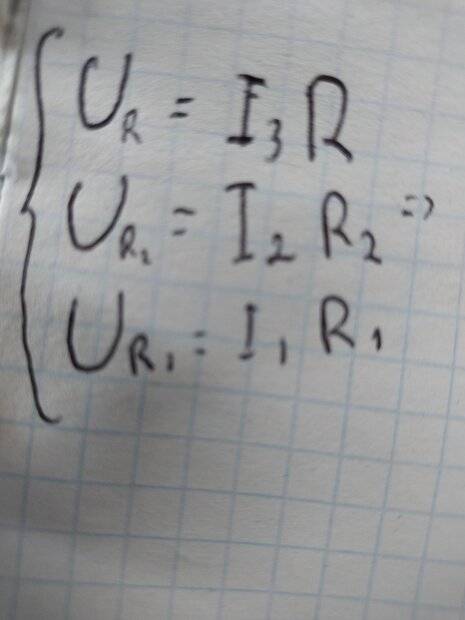 U_R = I_3 R
U_{R_2} = I_2 R_2 =>
U_{R_1} = I_1 R_1